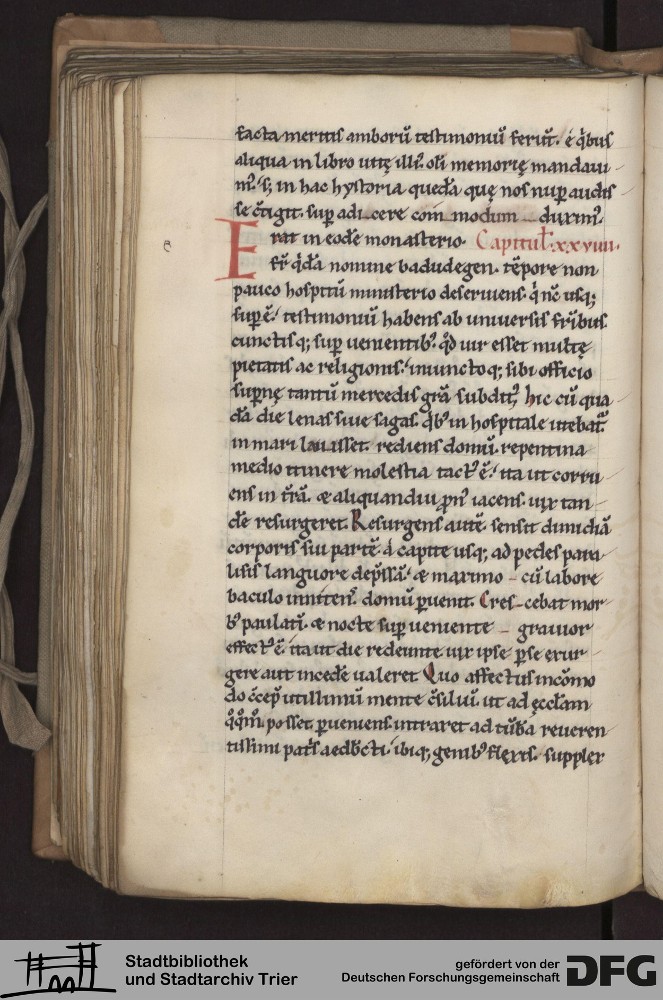 facta meritis amborū testimoniū ferūt. é q̇bus
aliqua in libro uitę illi᾽. olī memorię mandaui
m᾽. s; in hac hystoria quedā quę nos nup̱ audis
se c̄tigit. sup̱ adicere commodum duxim᾽.
Erat in eodē monasterio. Capitul̄. xxviiii.
fr̄ q̇dā nomine badudegen. tēpore non
pauco hospitū ministerio deseruiens. q̇ nc̄ usq;
sup̱ ē. testimoniū habens ab uniuersis fr̄ibus
cunctisq; sup̱ uenientib᾽. qd̄ uir esset multę
pietatis ac religionis. iniunctoq; sibi officio
sup̱nę tantū mercedis gr̄a subdit᾽. hic cū qua
dā die lenas siue sagas. q̇b᾽ in hospitale utebat᾽
in mari lauisset. rediens domū. repentina
medio itinere molestia tact᾽ ē. ita ut corru
ens in tr̄ā. & aliquandiu pn᾽ iacens. uix tan
dē resurgeret. Resurgens autē. sensit dimidiā
corporis sui partē á capite usq; ad pedes para
lisis languore dep̄ssā. & maximo cū labore
baculo innitens. domū p̱uenit. Crescebat mor
b᾽ paulatī. & nocte sup̱ueniente grauior
effect᾽ ē. ita ut die redeunte uix ipse p̱ se exur
gere aut incedē ualeret. Quo affectus incōmo
do c̄cep̄ utillimū mente c̄siliū. ut ad ęccl̄am
qoqom posset p̱ueniens. intraret ad tūbā reueren
tissimi patr̄s aedb̄cti. ibiq; genib᾽ flexis. supplex
e
Stadtbibliothek
und Stadtarchiv Trier
gefördert von der
Deutschen Forschungsgemeinschaft
DFG